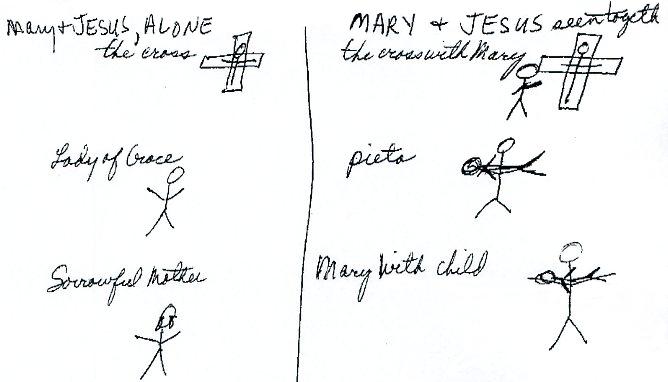 Mary & JESUS, ALONE
the cross
Lady of Grace
Sorrowful Mother
MARY & JESUS seen togeth
the cross with Mary
pieta
Mary With child